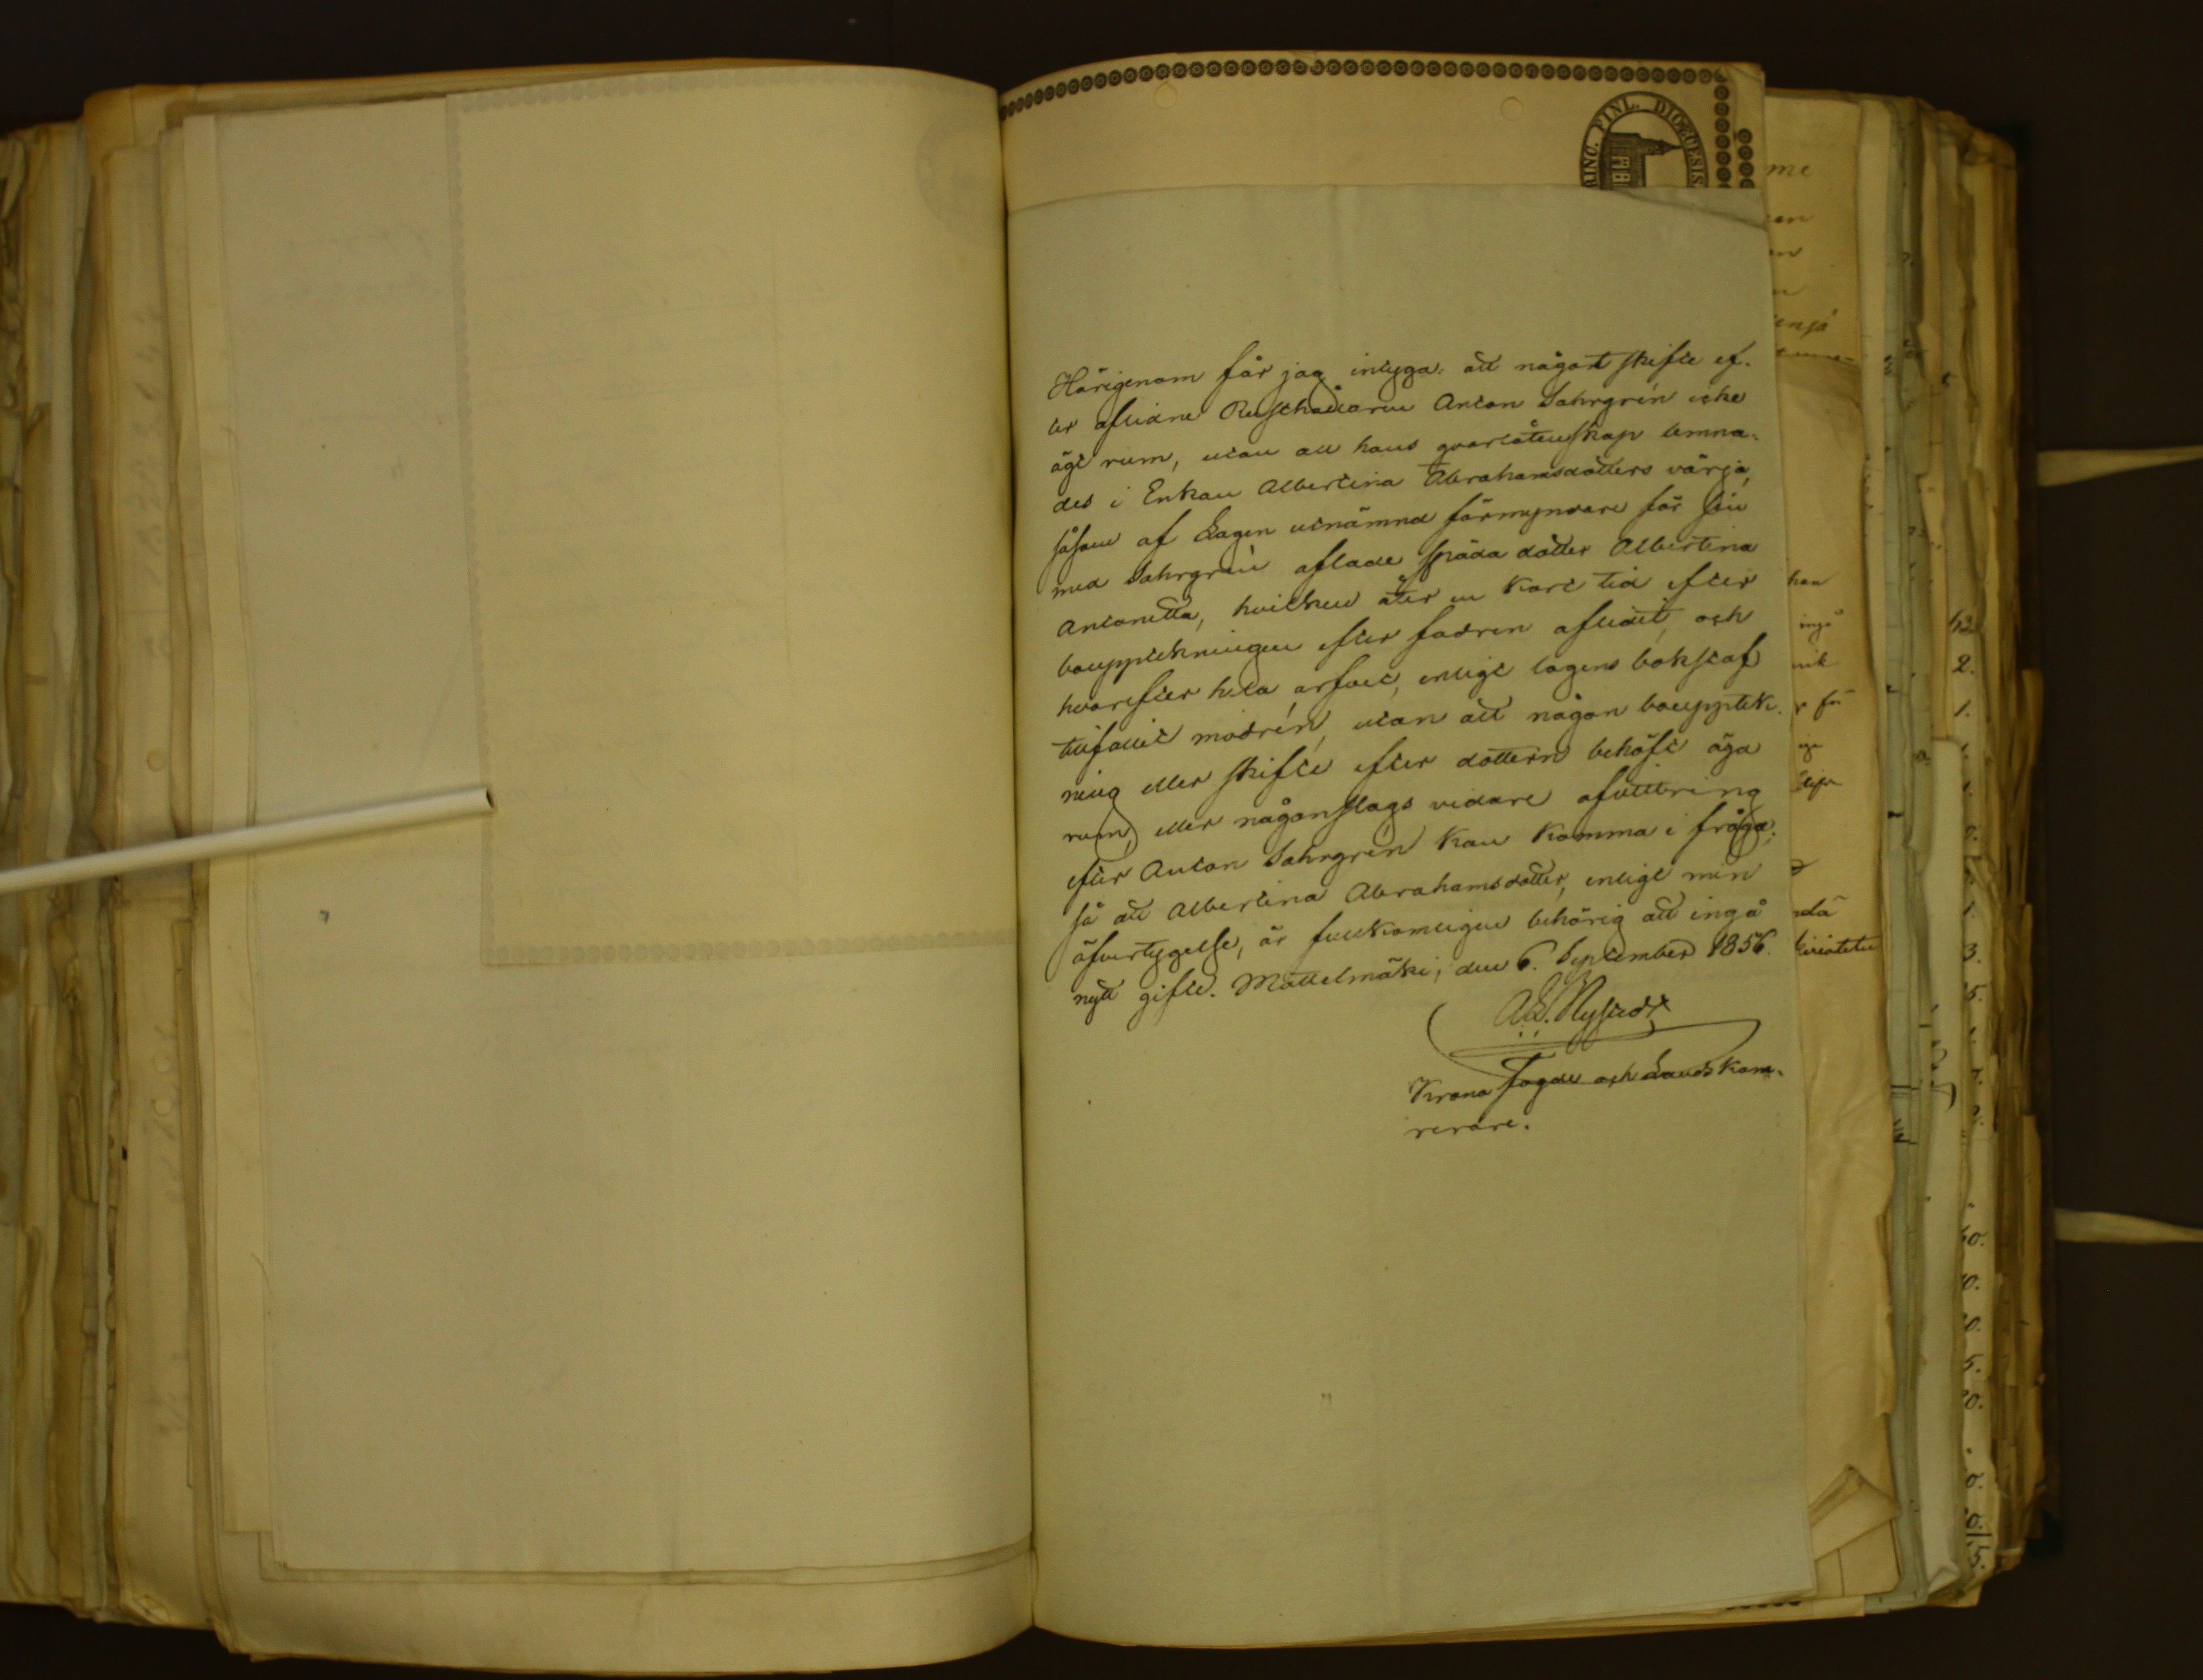 RINC. FINL. DIOECESIS
Härigenom får jag intyga: att något skifte ef-
ter aflidne Rusthållaren Anton Sahrgrén icke
ägt rum, utan all hans qvarlåtenskap lemna-
des i Enkan Albertina Abrahamsdotters värjo,
såsom af Lagen utnämnd förmyndare för sin
med Sahrgrén aflade späda dotter Albertina
Antonetta, hvilken åter en kort tid efter
bouppteckningen efter fadren aflidit, och
hvarefter hela arfvet, enligt lagens bokstaf
tillfallit modren, utan att någon bouppteck-
ning eller skifte efter dottern behöft äga
rum, eller någonslags vidare afvittring
efter Anton Sahrgrén kan komma i fråga;
så att Albertina Abrahamsdotter, enligt min
öfvertygelse, är fullkomligen behörig att ingå
nytt gifte. Mottelmäki, den 6. September 1856.
Nystedt
Krono fogde och Landskam-
rerare.